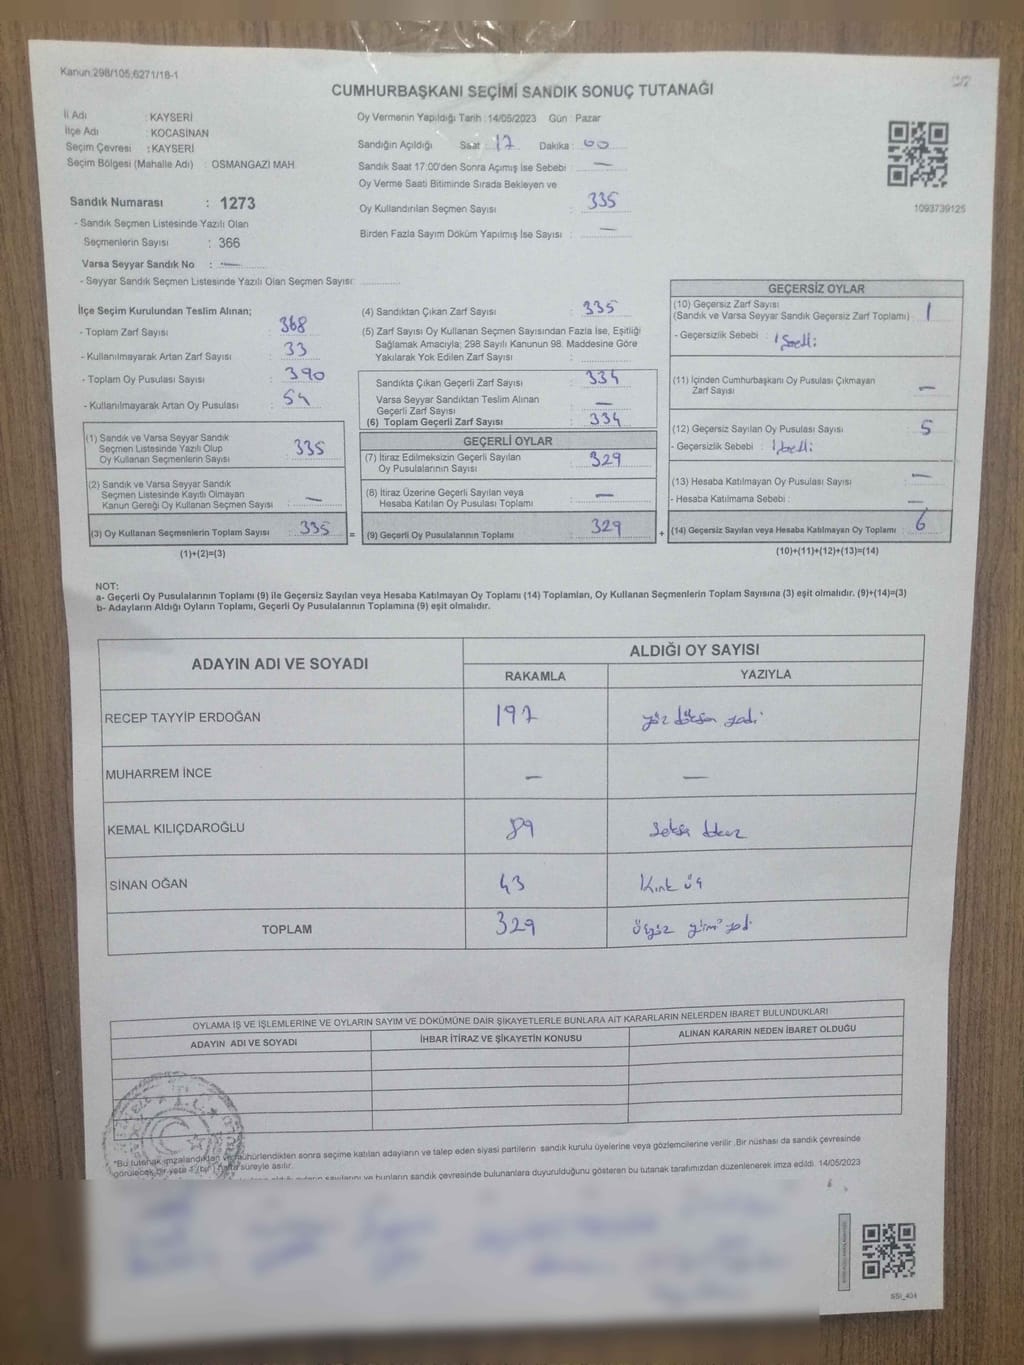 Kanun:298/105;6271/18-1
CUMHURBAŞKANI SEÇİMİ SANDIK SONUÇ TUTANAĞI
İl Adı : KAYSERİ
İlçe Adı : KOCASİNAN
Seçim Çevresi : KAYSERİ
Seçim Bölgesi (Mahalle Adı) : OSMANGAZI MAH
Sandık Numarası : 1273
- Sandık Seçmen Listesinde Yazılı Olan
Seçmenlerin Sayısı : 366
Varsa Seyyar Sandık No : —
- Seyyar Sandık Seçmen Listesinde Yazılı Olan Seçmen Sayısı :
Oy Vermenin Yapıldığı Tarih :14/05/2023 Gün : Pazar
Sandığın Açıldığı Saat : 17 Dakika : 00
Sandık Saat 17.00'den Sonra Açımış İse Sebebi : —
Oy Verme Saati Bitiminde Sırada Bekleyen ve
Oy Kullandırılan Seçmen Sayısı : 335
Birden Fazla Sayım Döküm Yapılmış İse Sayısı : —
1093739125
İlçe Seçim Kurulundan Teslim Alınan;
- Toplam Zarf Sayısı : 368
- Kullanılmayarak Artan Zarf Sayısı : 33
- Toplam Oy Pusulası Sayısı : 390
- Kullanılmayarak Artan Oy Pusulası : 54
(1) Sandık ve Varsa Seyyar Sandık
Seçmen Listesinde Yazılı Olup
Oy Kullanan Seçmenlerin Sayısı : 335
(2) Sandık ve Varsa Seyyar Sandık
Seçmen Listesinde Kayıtlı Olmayan
Kanun Gereği Oy Kullanan Seçmen Sayısı : —
(3) Oy Kullanan Seçmenlerin Toplam Sayısı : 335
(1)+(2)=(3)
=
(4) Sandıktan Çıkan Zarf Sayısı : 335
(5) Zarf Sayısı Oy Kullanan Seçmen Sayısından Fazla İse, Eşitliği
Sağlamak Amacıyla; 298 Sayılı Kanunun 98. Maddesine Göre
Yakılarak Yok Edilen Zarf Sayısı :
Sandıkta Çıkan Geçerli Zarf Sayısı : 334
Varsa Seyyar Sandıktan Teslim Alınan
Geçerli Zarf Sayısı : —
(6) Toplam Geçerli Zarf Sayısı : 334
GEÇERLİ OYLAR
(7) İtiraz Edilmeksizin Geçerli Sayılan
Oy Pusulalarının Sayısı : 329
(8) İtiraz Üzerine Geçerli Sayılan veya
Hesaba Katılan Oy Pusulası Toplamı : —
(9) Geçerli Oy Pusulalarının Toplamı : 329
+
GEÇERSİZ OYLAR
(10) Geçersiz Zarf Sayısı
(Sandık ve Varsa Seyyar Sandık Geçersiz Zarf Toplamı) : 1
- Geçersizlik Sebebi :
(11) İçinden Cumhurbaşkanı Oy Pusulası Çıkmayan
Zarf Sayısı : —
(12) Geçersiz Sayılan Oy Pusulası Sayısı : 5
- Geçersizlik Sebebi :
(13) Hesaba Katılmayan Oy Pusulası Sayısı : —
- Hesaba Katılmama Sebebi : —
(14) Geçersiz Sayılan veya Hesaba Katılmayan Oy Toplamı : 6
(10)+(11)+(12)+(13)=(14)
NOT:
a- Geçerli Oy Pusulalarının Toplamı (9) ile Geçersiz Sayılan veya Hesaba Katılmayan Oy Toplamı (14) Toplamları, Oy Kullanan Seçmenlerin Toplam Sayısına (3) eşit olmalıdır. (9)+(14)=(3)
b- Adayların Aldığı Oyların Toplamı, Geçerli Oy Pusulalarının Toplamına (9) eşit olmalıdır.
ADAYIN ADI VE SOYADI
ALDIĞI OY SAYISI
RAKAMLA YAZIYLA
RECEP TAYYIP ERDOĞAN 197 yüz doksan yedi
MUHARREM İNCE — —
KEMAL KILIÇDAROĞLU 89 seksen dokuz
SİNAN OĞAN 43 Kırk üç
TOPLAM 329 üçyüz yirmi
OYLAMA İŞ VE İŞLEMLERİNE VE OYLARIN SAYIM VE DÖKÜMÜNE DAİR ŞİKAYETLERLE BUNLARA AİT KARARLARIN NELERDEN İBARET BULUNDUKLARI
ADAYIN ADI VE SOYADI İHBAR İTİRAZ VE ŞİKAYETİN KONUSU ALINAN KARARIN NEDEN İBARET OLDUĞU
T.C.
"Bu tutanak imzalandıktan ve mühürlendikten sonra seçime katılan adayların ve talep eden siyasi partilerin sandık kurulu üyelerine veya gözlemcilerine verilir .Bir nüshası da sandık çevresinde
görülecek bir yere 1 (bir) hafta süreyle asılır.
sayılarını ve bunların sandık çevresinde bulunanlara duyurulduğunu gösteren bu tutanak tarafımızdan düzenlenerek imza edildi. 14/05/2023